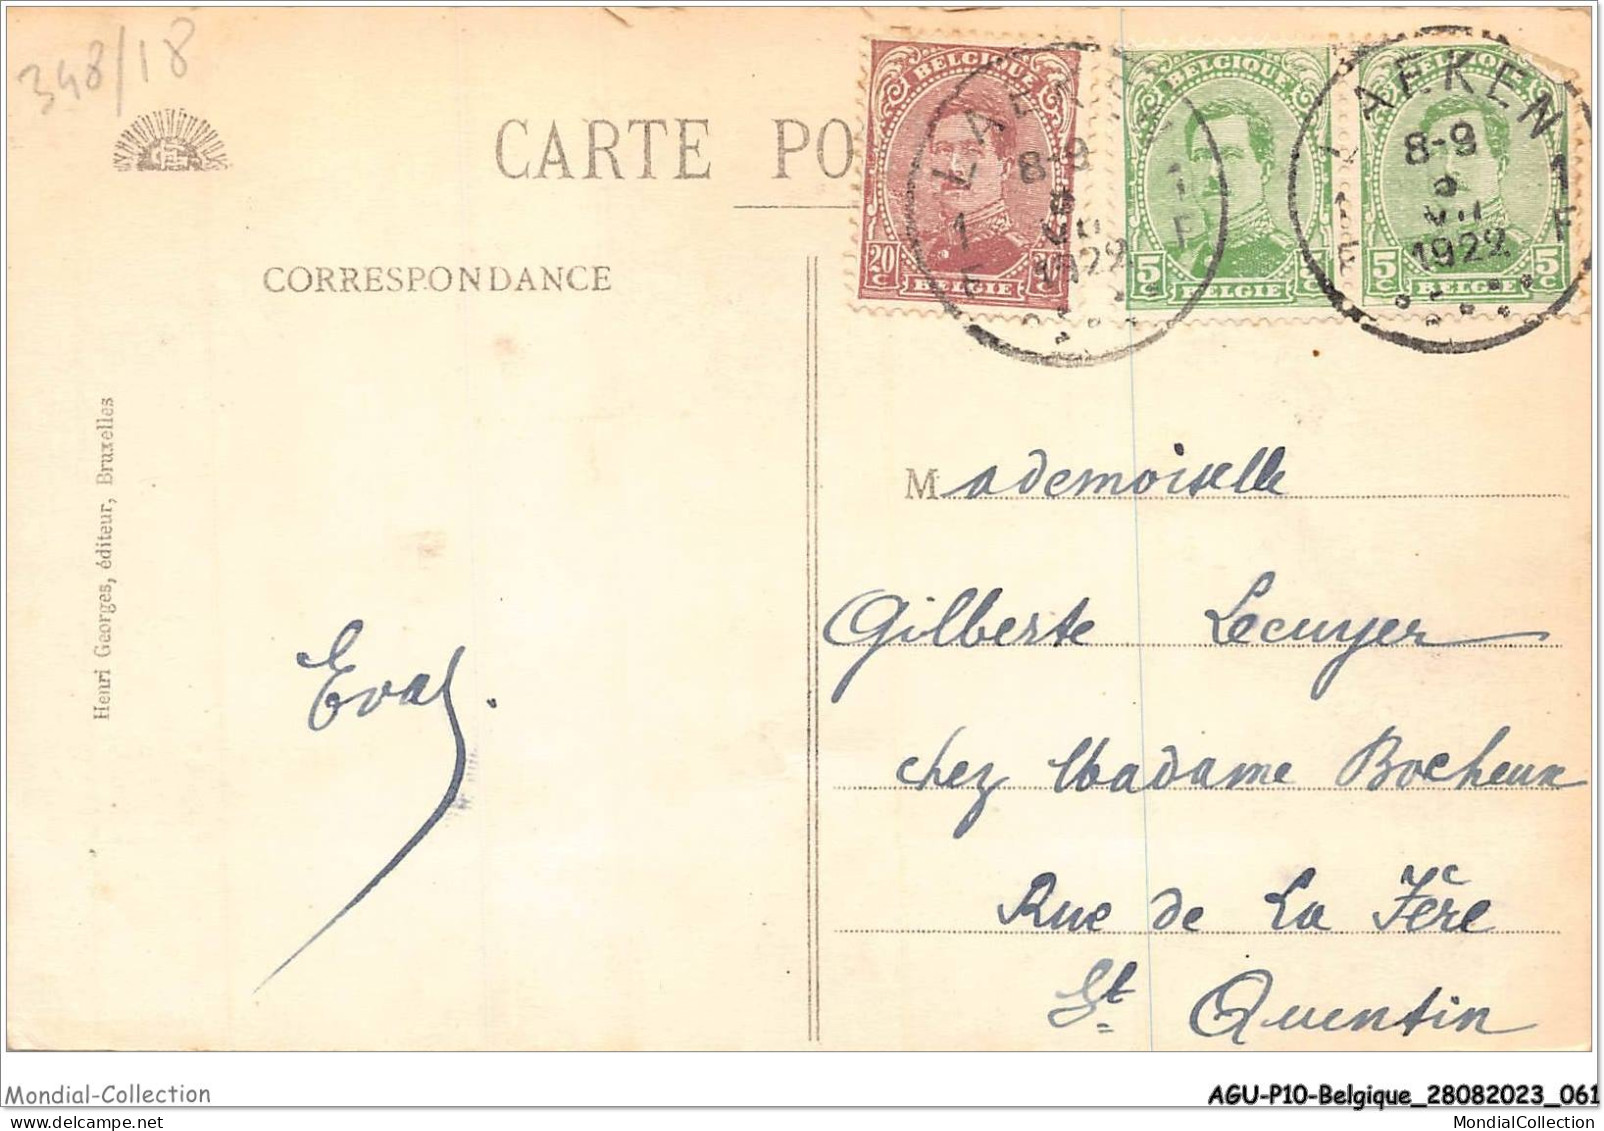 348/18
CARTE PO
CORRESPONDANCE
BELGIQUE
20 C
BELGIE
BELGIQUE
5 C 5 C
BELGIE
BELGIQUE
5 C 5 C
BELGIE
LAEKEN
8-9
VII
1922
1 F
LAEKEN 1
8-9
VII
1922
1 F
Henri Georges, éditeur, Bruxelles
Mademoiselle
Gilberte Lecuyer
chez Madame Bocheux
Rue de La Fère
St Quentin
Eva.
Mondial-Collection
AGU-P10-Belgique_28082023_061
MondialCollection